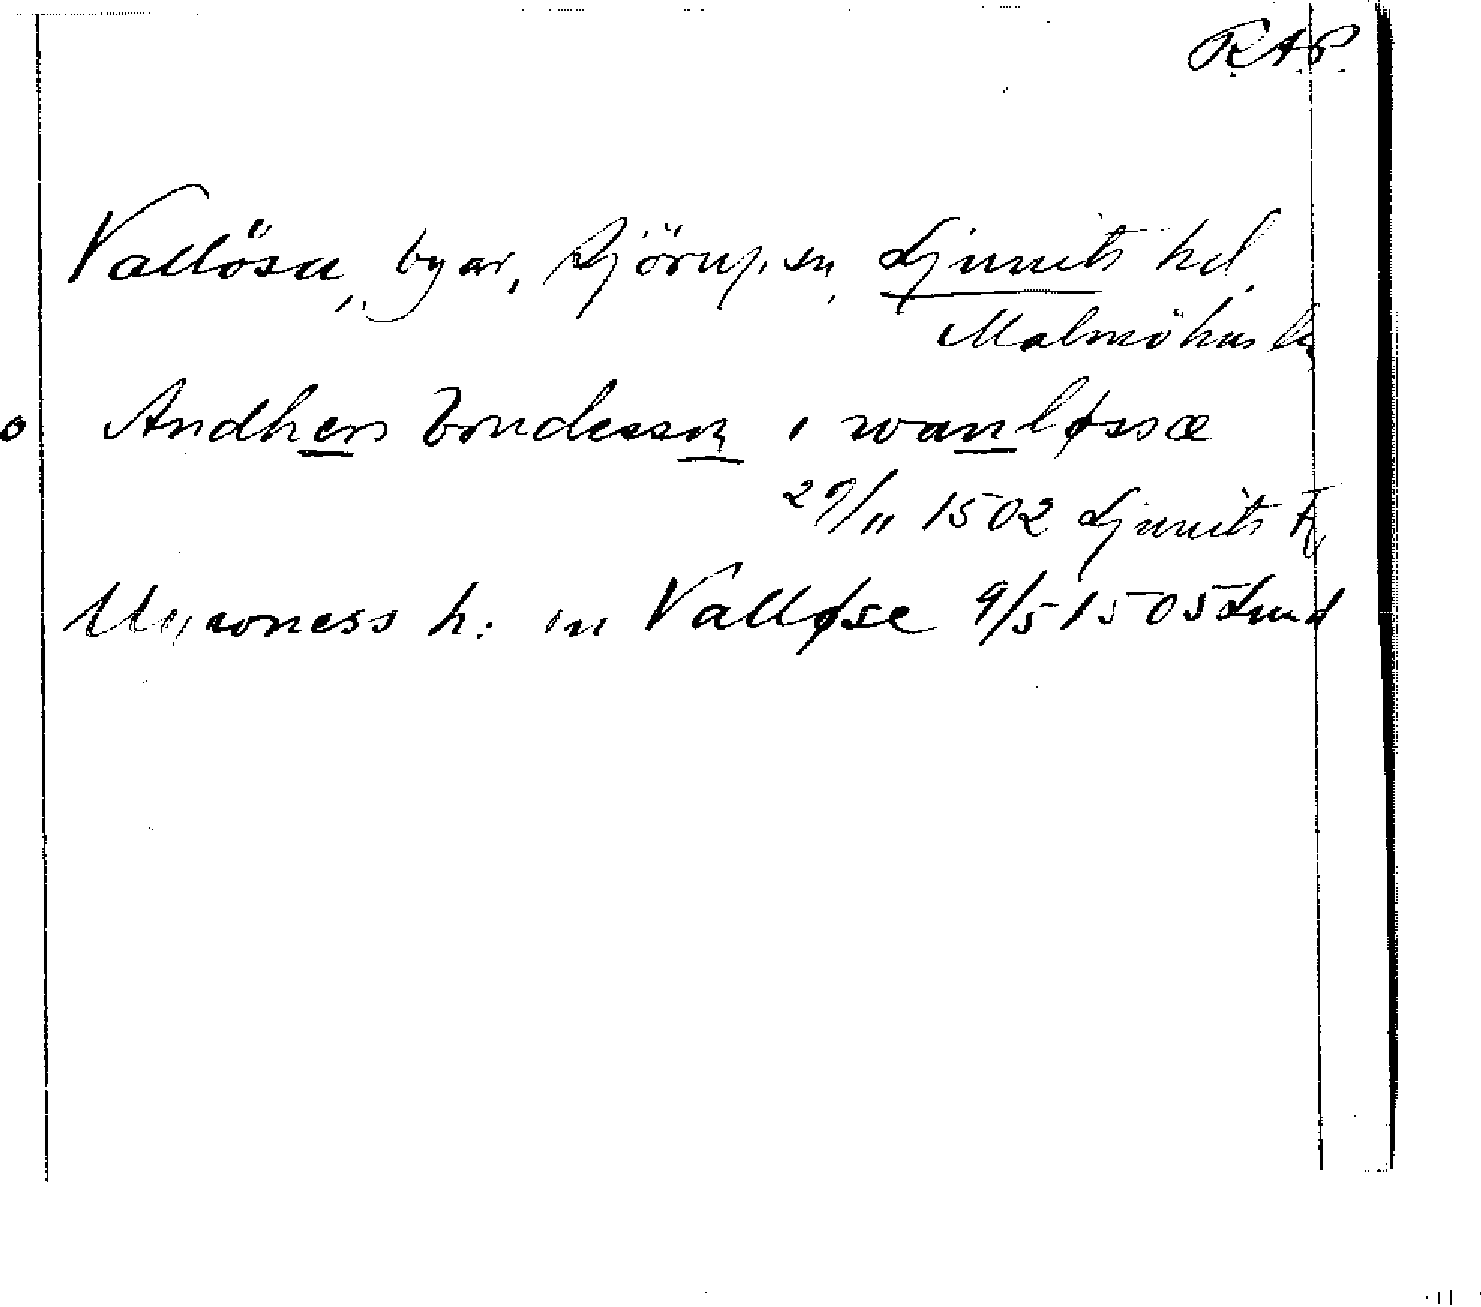 R.A.P.
Vallösa, byar, Sjörup, sn, Ljunits hd,
Malmöhus l.
o Andhers bondessøn i wanløssæ
29/11 1502 Ljunits
h: in Valløse 9/5 1505 Lund